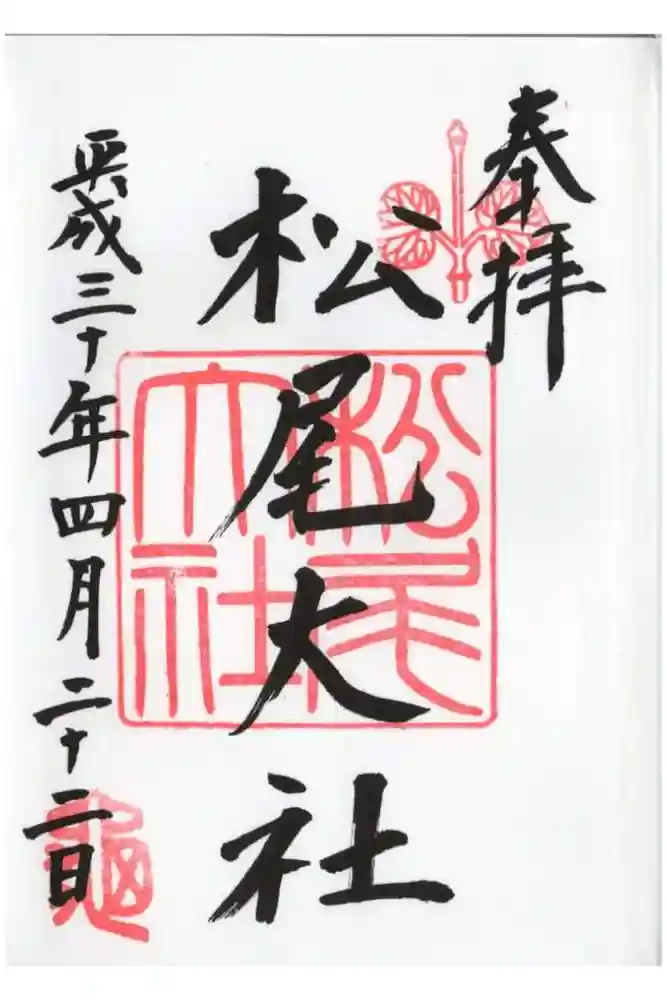 奉拝
松尾大社
松尾大社
平成三十年四月二十二日
亀